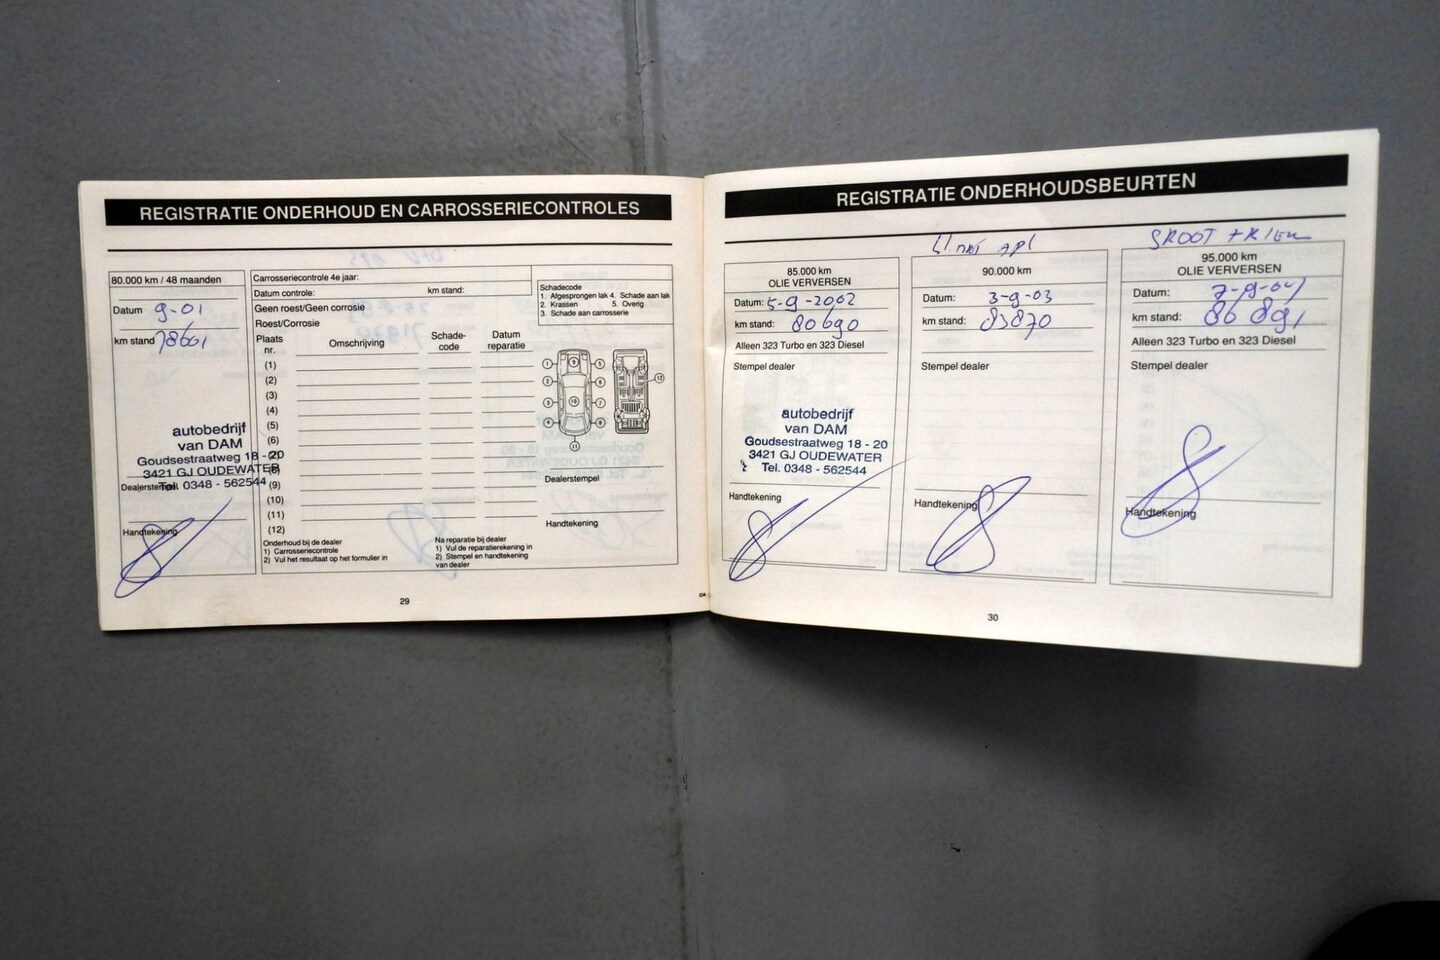 REGISTRATIE ONDERHOUD EN CARROSSERIECONTROLES
80.000 km / 48 maanden
Datum 9-01
km stand 78661
autobedrijf
van DAM
Goudsestraatweg 18 - 20
3421 GJ OUDEWATER
Tel. 0348 - 562544
Dealerstempel
Handtekening
Carrosseriecontrole 4e jaar:
Datum controle: km stand:
Geen roest/Geen corrosie
Roest/Corrosie
Plaats nr. Omschrijving Schade-code Datum reparatie
(1)
(2)
(3)
(4)
(5)
(6)
(7)
(8)
(9)
(10)
(11)
(12)
Onderhoud bij de dealer
1) Carrosseriecontrole
2) Vul het resultaat op het formulier in
Na reparatie bij dealer
1) Vul de reparatierekening in
2) Stempel en handtekening
van dealer
Schadecode
1. Afgesprongen lak 4. Schade aan lak
2. Krassen 5. Overig
3. Schade aan carrosserie
Dealerstempel
Handtekening
29
REGISTRATIE ONDERHOUDSBEURTEN
85.000 km
OLIE VERVERSEN
Datum: 5-9-2002
km stand: 80690
Alleen 323 Turbo en 323 Diesel
Stempel dealer
autobedrijf
van DAM
Goudsestraatweg 18 - 20
3421 GJ OUDEWATER
Tel. 0348 - 562544
Handtekening
90.000 km
OLIE VERVERSEN
Datum: 3-9-03
km stand: 83870
Alleen 323 Turbo en 323 Diesel
Stempel dealer
Handtekening
GROOT
95.000 km
OLIE VERVERSEN
Datum: 7-9-04
km stand: 86891
Alleen 323 Turbo en 323 Diesel
Stempel dealer
Handtekening
30